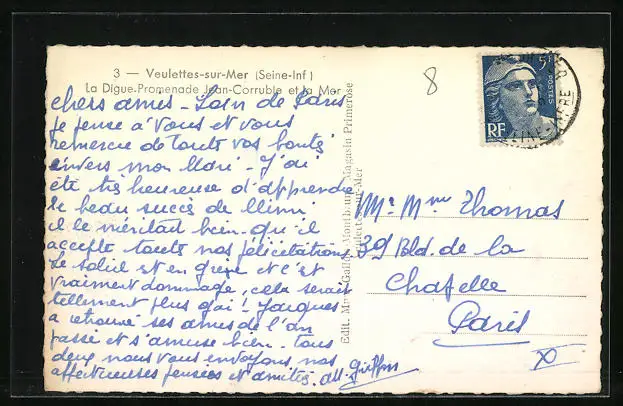 3 — Veulettes-sur-Mer (Seine-Inf)
La Digue-Promenade Jean-Corruble et la Mer
8
chers amis - Loin de Paris
je pense à vous et vous
remercie de toute vos bontés
envers mon Mari - J'ai
été très heureuse d'apprendre
le beau succès de Mimi
il le méritait bien - qu'il
accepte toute nos félicitations
Le soleil est en grève et c'est
vraiment dommage, cela serait
tellement plus gai ! Jacques
a retrouvé ses amis de l'an
passé et s'amuse bien - tous
deux nous vous envoyons nos
affectueuses pensées et amitiés.
Edit. Magasin Primerose
Veulettes-sur-Mer
5F
POSTES
RF
Mr Mme Thomas
39 Bld. de la
Chapelle
Paris
X